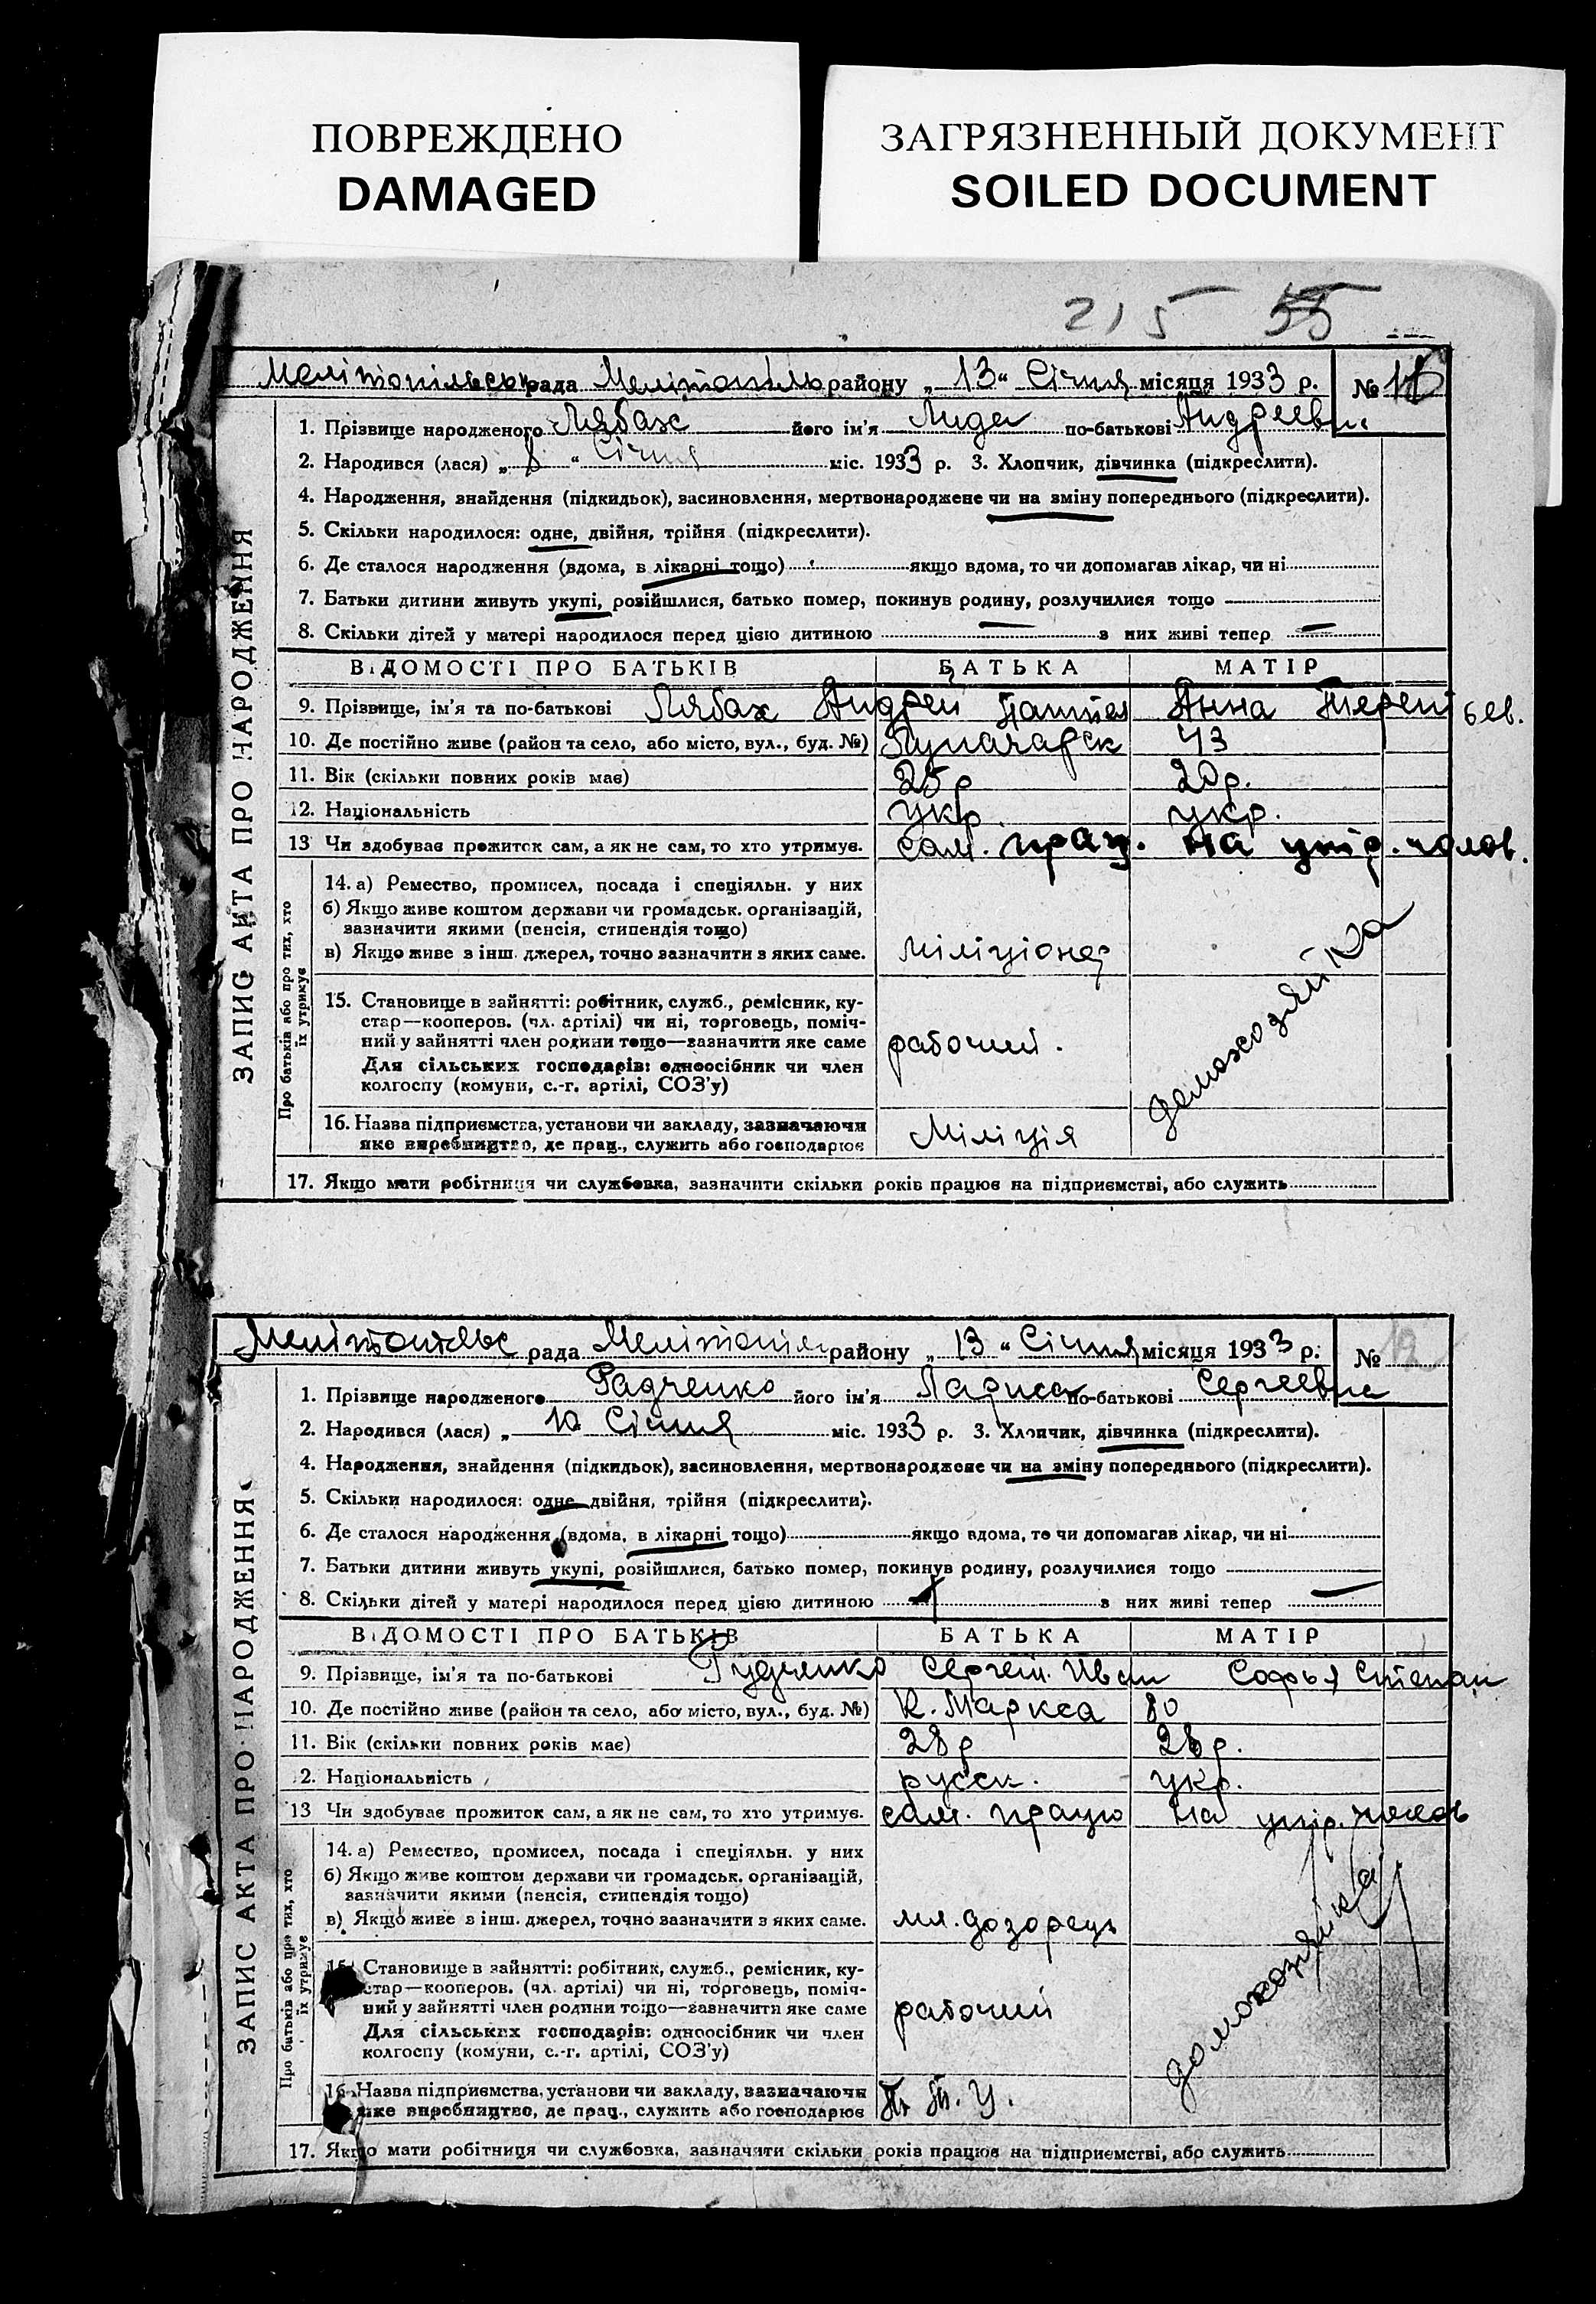 ПОВРЕЖДЕНО
DAMAGED
ЗАГРЯЗНЕННЫЙ ДОКУМЕНТ
SOILED DOCUMENT
215 55
ЗАПИС АКТА ПРО НАРОДЖЕННЯ
рада району „ 13 “ Січня місяця 1933 р. №
1. Прізвище народженого Лябах його ім'я Лида по-батькові Андреевна
2. Народився (лася) „ 8 “ Січня міс. 1933 р. 3. Хлопчик, дівчинка (підкреслити).
4. Народження, знайдення (підкидьок), засиновлення, мертвонароджене чи на зміну попереднього (підкреслити).
5. Скільки народилося: одне, двійня, трійня (підкреслити).
6. Де сталося народження (вдома, в лікарні тощо) якщо вдома, то чи допомагав лікар, чи ні
7. Батьки дитини живуть укупі, розійшлися, батько помер, покинув родину, розлучилися тощо
8. Скільки дітей у матері народилося перед цією дитиною — з них живі тепер —
ВІДОМОСТІ ПРО БАТЬКІВ БАТЬКА МАТІР
9. Прізвище, ім'я та по-батькові Лябах Андрей Анна
10. Де постійно живе (район та село, або місто, вул., буд. №) 43
11. Вік (скільки повних років має) 25р 20р.
12. Національність укр укр.
13 Чи здобуває прожиток сам, а як не сам, то хто утримує. сам. прац. на утр. чолов.
Про батьків або про тих, хто їх утримує
14. а) Ремество, промисел, посада і спеціяльн. у них
б) Якщо живе коштом держави чи громадськ. організацій,
зазначити якими (пенсія, стипендія тощо)
в) Якщо живе з інш. джерел, точно зазначити з яких саме. міліціонер
домохозяйка
15. Становище в зайнятті: робітник, служб., ремісник, ку-
стар—кооперов. (чл. артілі) чи ні, торговець, поміч-
ний у зайнятті член родини тощо—зазначити яке саме рабочий.
Для сільських господарів: одноосібник чи член
колгоспу (комуни, с.-г. артілі, СОЗ'у)
16. Назва підприємства, установи чи закладу, зазначаючи
яке виробництво, де прац., служить або господарює Міліція
17. Якщо мати робітниця чи службовка, зазначити скільки років працює на підприємстві, або служить
ЗАПИС АКТА ПРО НАРОДЖЕННЯ
рада району „ 13 “ Січня місяця 1933 р. № 12
1. Прізвище народженого Радченко його ім'я Лариса по-батькові Сергеевна
2. Народився (лася) „ 10 Січня міс. 1933 р. 3. Хлопчик, дівчинка (підкреслити).
4. Народження, знайдення (підкидьок), засиновлення, мертвонароджене чи на зміну попереднього (підкреслити).
5. Скільки народилося: одне, двійня, трійня (підкреслити).
6. Де сталося народження (вдома, в лікарні тощо) якщо вдома, то чи допомагав лікар, чи ні
7. Батьки дитини живуть укупі, розійшлися, батько помер, покинув родину, розлучилися тощо
8. Скільки дітей у матері народилося перед цією дитиною 1 з них живі тепер —
ВІДОМОСТІ ПРО БАТЬКІВ БАТЬКА МАТІР
9. Прізвище, ім'я та по-батькові Сергей Иван Софья Степан
10. Де постійно живе (район та село, або місто, вул., буд. №) К. Маркса 80
11. Вік (скільки повних років має) 28р 28р.
12. Національність русск. укр.
13 Чи здобуває прожиток сам, а як не сам, то хто утримує. сам. працю на утр. чолов
Про батьків або про тих, хто їх утримує
14. а) Ремество, промисел, посада і спеціяльн. у них
б) Якщо живе коштом держави чи громадськ. організацій,
зазначити якими (пенсія, стипендія тощо)
в) Якщо живе з інш. джерел, точно зазначити з яких саме. мл. дозорець
домохозяйка
15. Становище в зайнятті: робітник, служб., ремісник, ку-
стар—кооперов. (чл. артілі) чи ні, торговець, поміч-
ний у зайнятті член родини тощо—зазначити яке саме рабочий
Для сільських господарів: одноосібник чи член
колгоспу (комуни, с.-г. артілі, СОЗ'у)
16. Назва підприємства, установи чи закладу, зазначаючи
яке виробництво, де прац., служить або господарює
17. Якщо мати робітниця чи службовка, зазначити скільки років працює на підприємстві, або служить